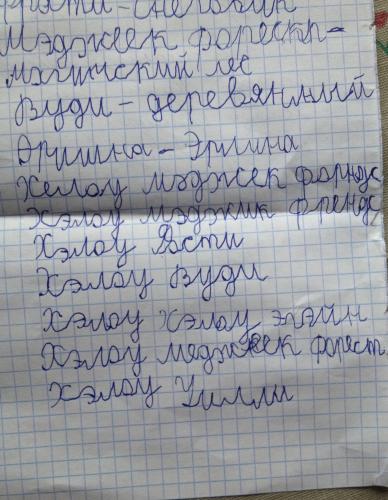 Фрости-снеговик
Мэджеек форескр-
мхгичский лес
Вуди - деревянный
Эришна - Эришна
Хелоу мэджеек френдс
Хэлоу мэджик френдс
Хэлоу Фости
Хэлоу Вуди
Хэлоу Хэлоу эгэйн
Хэлоу меджеек форест
Хэлоу Уилли